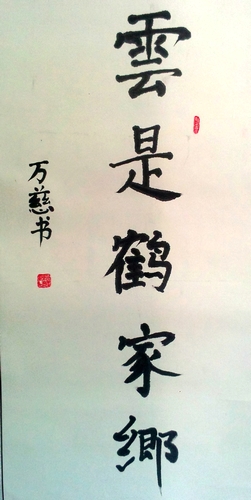 雲是鹤家鄉
万慈书